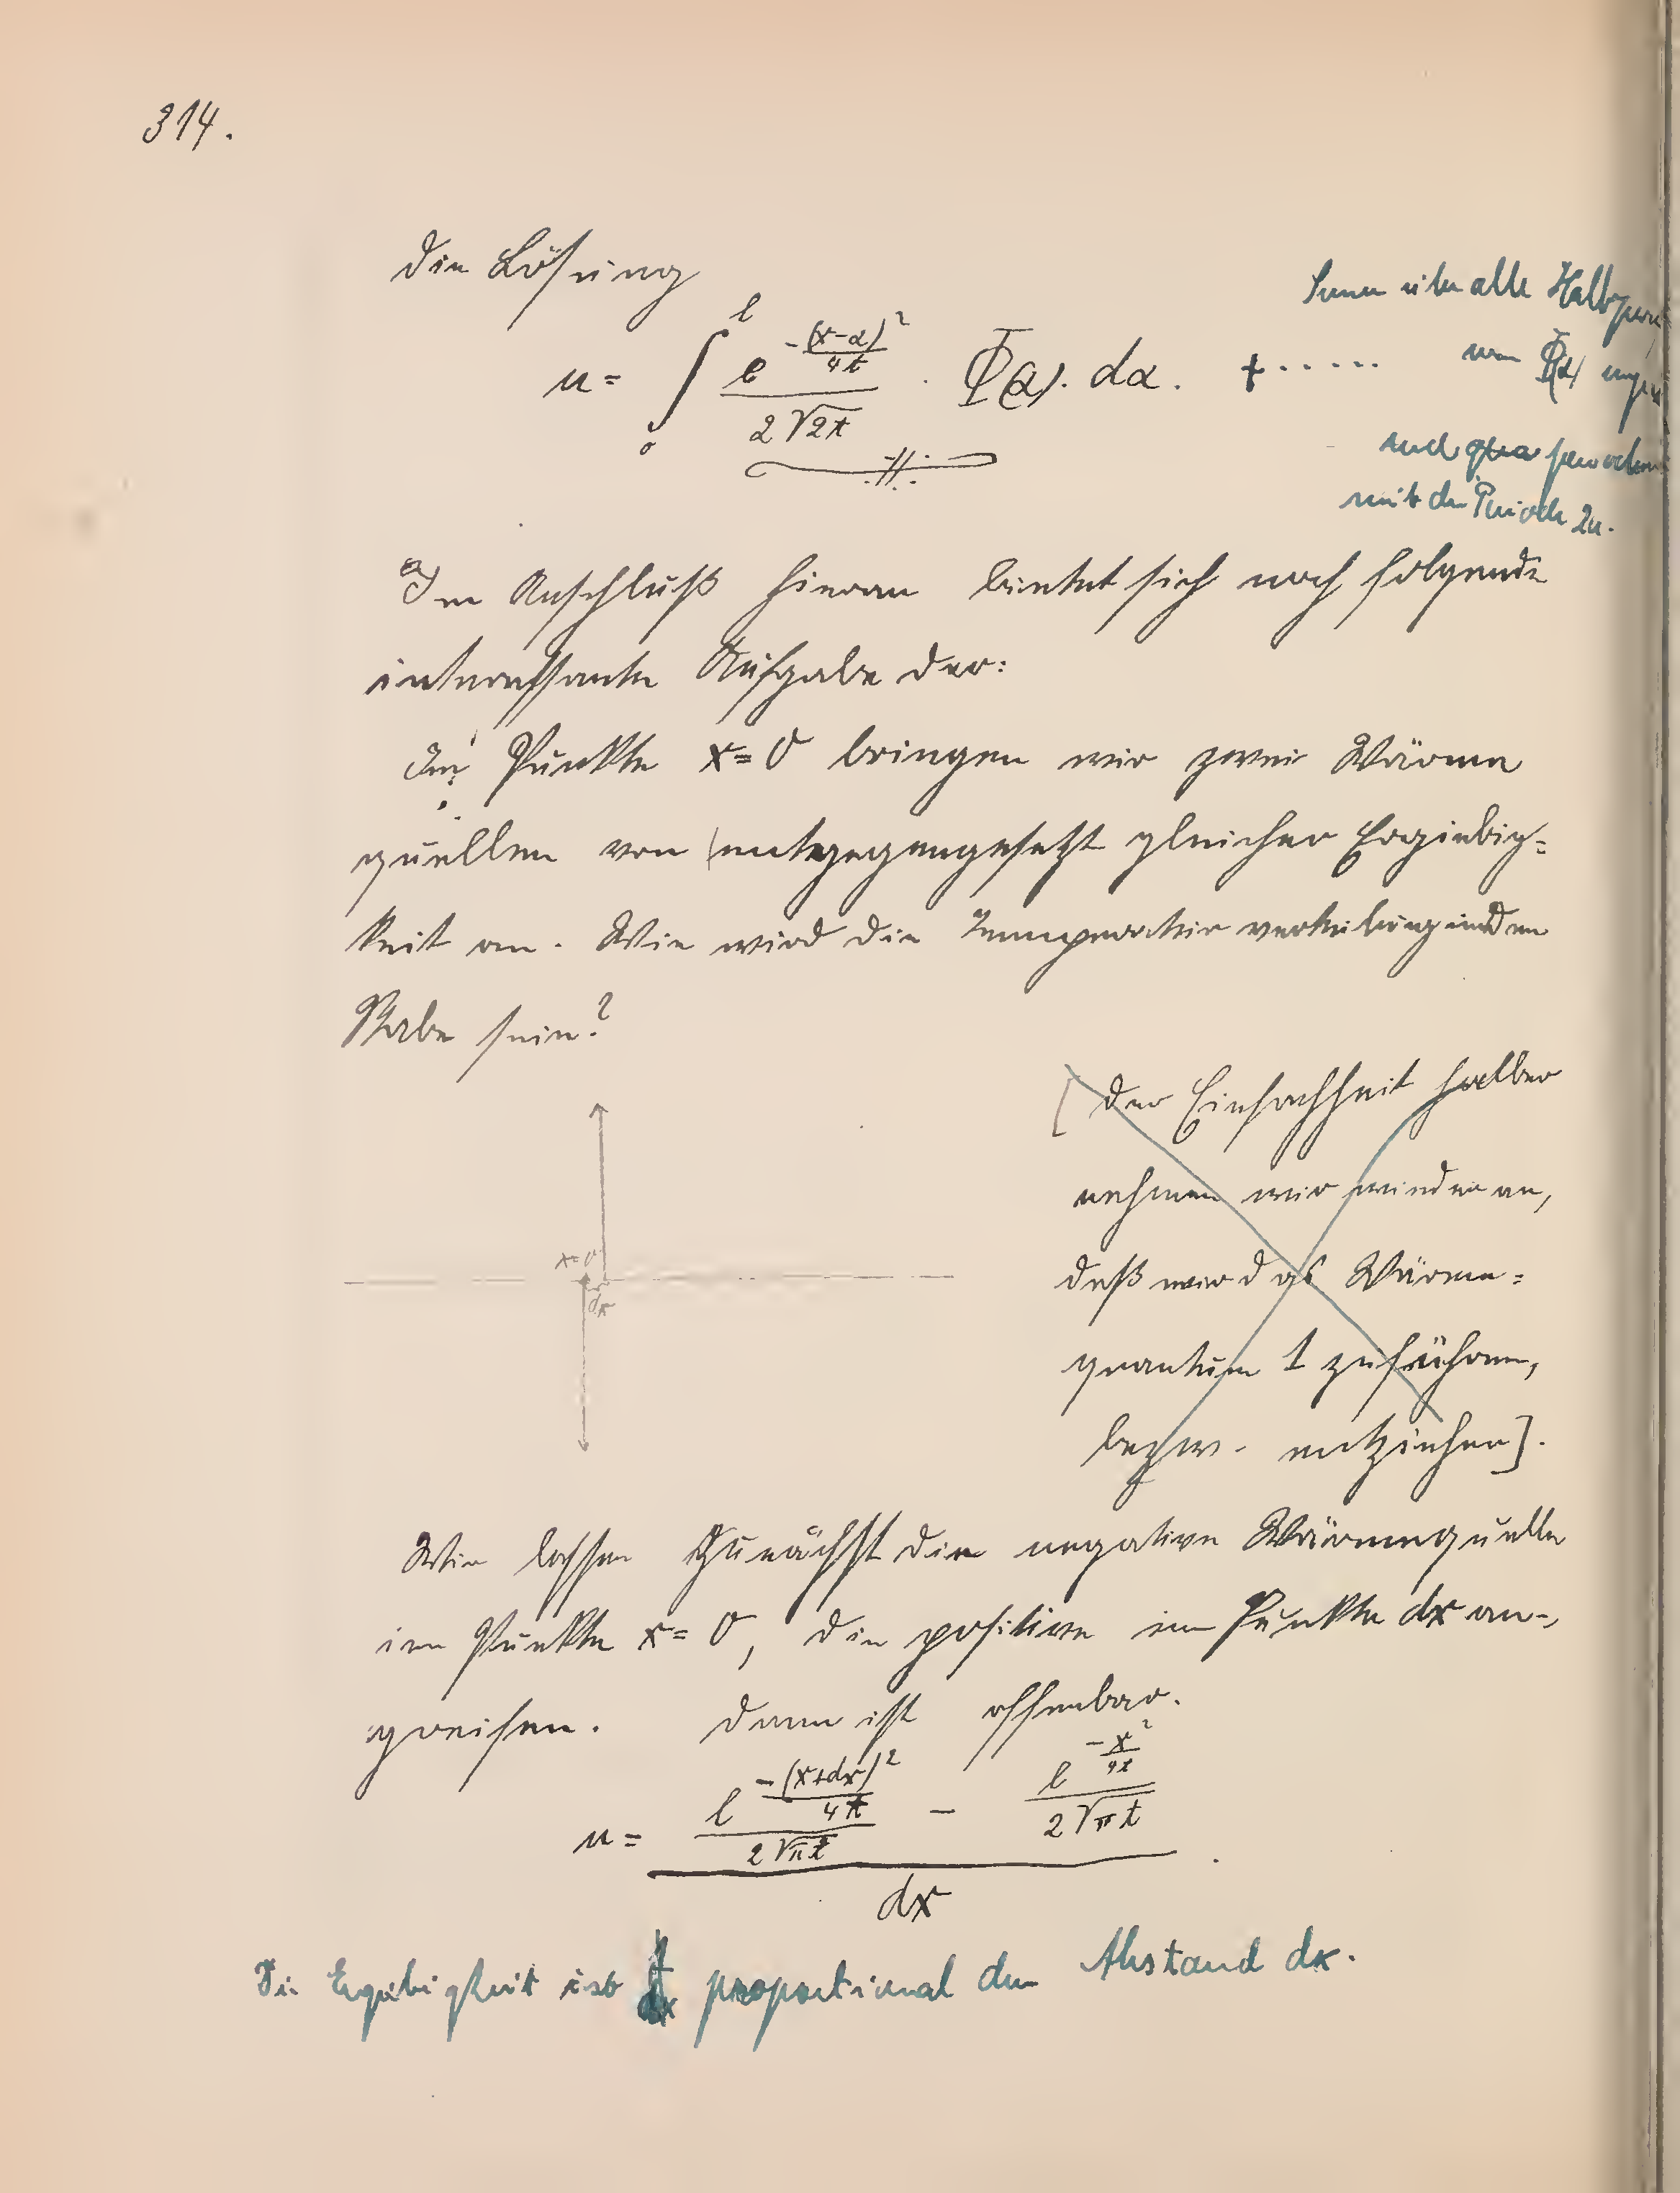 314.
die Lösung
u = ∫₀^l e^{-(x-α)²/4t} / 2√2t · Φ(α). dα. + .....
über alle
Φ(α)
und
mit der Periode
Im Anschluß hieran bietet sich noch folgende
interessante Aufgabe dar:
Im Punkte x=0 bringen wir zwei Wärme
quellen von entgegengesetzt gleicher Ergiebig=
keit an. Wie wird die Temperatur verteilung in dem
Stabe sein?
[der Einfachheit halber
nehmen wir wieder an,
daß wir das Wärme=
quantum 1 zuführen,
bezw. entziehen].
x=0
dx
Wir lassen zunächst die negative Wärmequelle
im Punkte x=0, die positive im Punkte dx an-
greifen. Dann ist offenbar.
u = (e^{-(x+dx)²/4t} / 2√πt - e^{-x²/4t} / 2√πt) / dx .
Die Ergiebigkeit ist proportional dem Abstand dx.